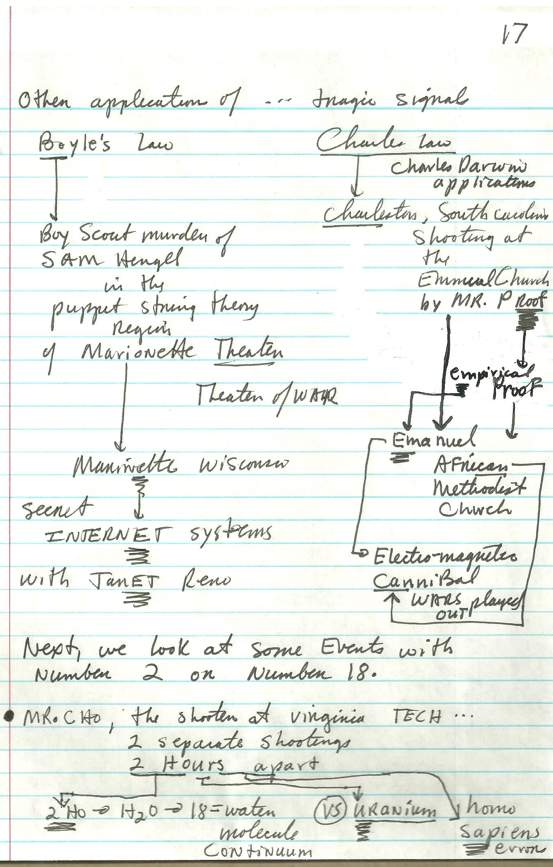 17
Other application of ... tragic signal
Boyle's Law
Charles Law
Charles Darwin
applications
Charleston, South Carolina
Shooting at
the
Emmual Church
by MR. P roof
Boy Scout murder of
SAM Hengel
in the
puppet string theory
Region
of Marionette Theater
Theater of WAR
empirical
Proof
Emanuel
African
Methodist
Church
Marinette Wisconsin
secret
INTERNET systems
with JanET Reno
Electro-magnetic
CanniBal
WARS played
OUT
Next, we look at some Events with
Number 2 on Number 18.
• MR. CHO, the shooter at Virginia TECH ...
2 separate shootings
2 Hours apart
2 HO → H2O → 18 = water
molecule
CONTINUUM
VS URANIUM
homo
sapiens
error